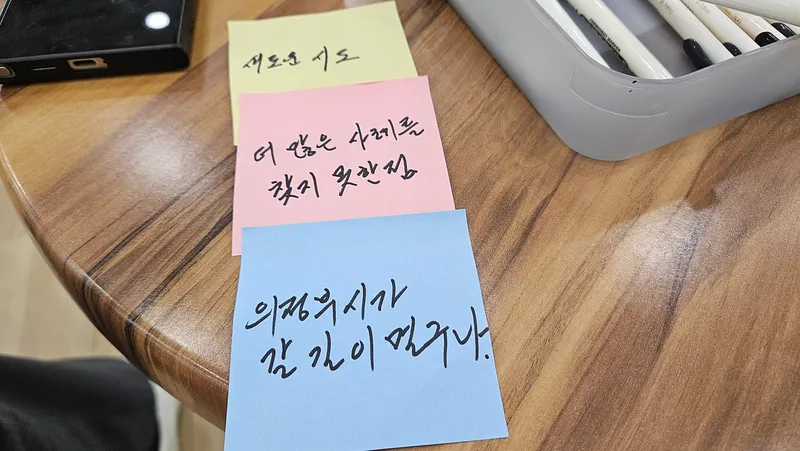 새로운 시도
더 많은 사례를
찾지 못한점
의정부시가
갈 길이 멀구나.